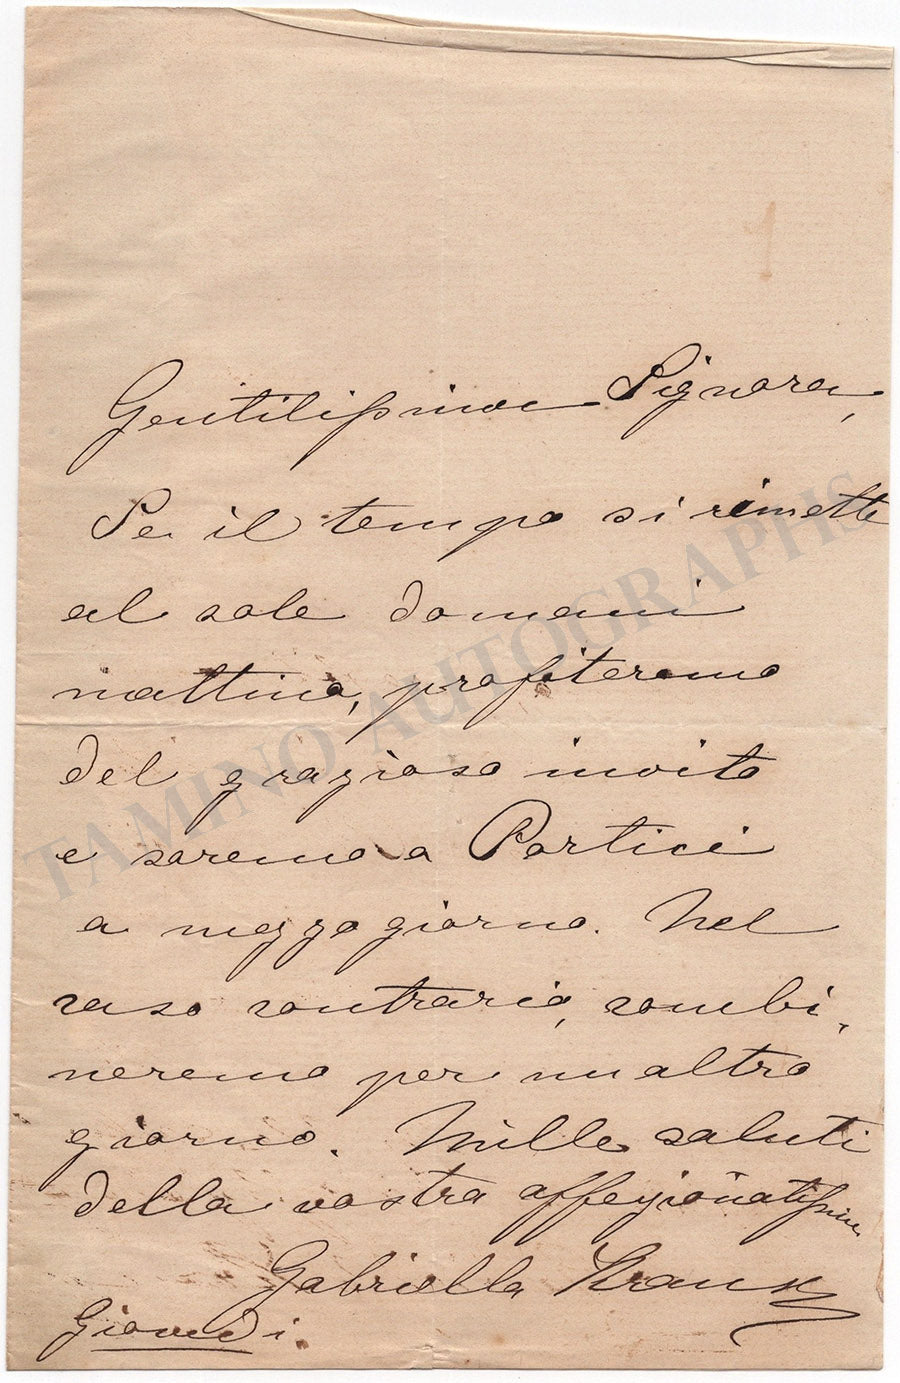 Gentilissima Signora,
Se il tempo si rimette
al sole domani
mattina, profiteremo
del grazioso invito
e saremo a Portici
a mezzogiorno. Nel
caso contrario, combi-
neremo per un altro
giorno. Mille saluti
della vostra affezionatissima
Gabriella Krauss
Giovedi.
TAMINO AUTOGRAPHS